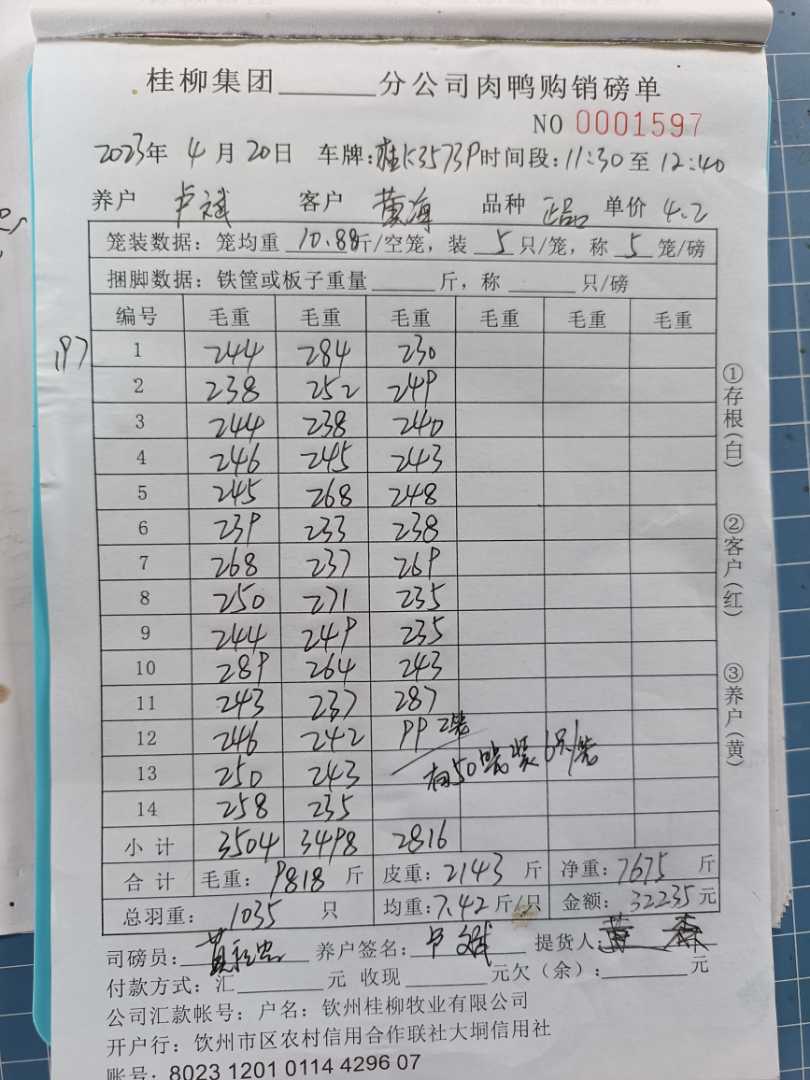 桂柳集团______分公司肉鸭购销磅单
NO 0001597
2023年 4月 20日 车牌:桂K3573P 时间段:11:30 至 12:40
养户 卢斌 客户 黄海 品种 正品 单价 4.2
笼装数据: 笼均重 10.88斤/空笼, 装 5 只/笼, 称 5 笼/磅
捆脚数据: 铁筐或板子重量______斤, 称______只/磅
编号 毛重 毛重 毛重 毛重 毛重 毛重
197
1 244 284 230
2 238 252 249
3 244 238 240
4 246 245 243
5 245 268 248
6 239 233 238
7 268 237 269
8 250 271 235
9 244 249 235
10 289 264 243
11 243 237 287
12 246 242 99 2笼
13 250 243 有50笼装6只/笼
14 258 235
小计 3504 3498 2816
合计 毛重: 9818 斤 皮重: 2143 斤 净重: 7675 斤
总羽重: 1035 只 均重: 7.42 斤/只 金额: 32235 元
司磅员: 养户签名: 卢斌 提货人:
付款方式: 汇______元 收现______元欠(余):______元
公司汇款帐号: 户名: 钦州桂柳牧业有限公司
开户行: 钦州市区农村信用合作联社大垌信用社
账号: 8023 1201 0114 4296 07
①存根(白)
②客户(红)
③养户(黄)